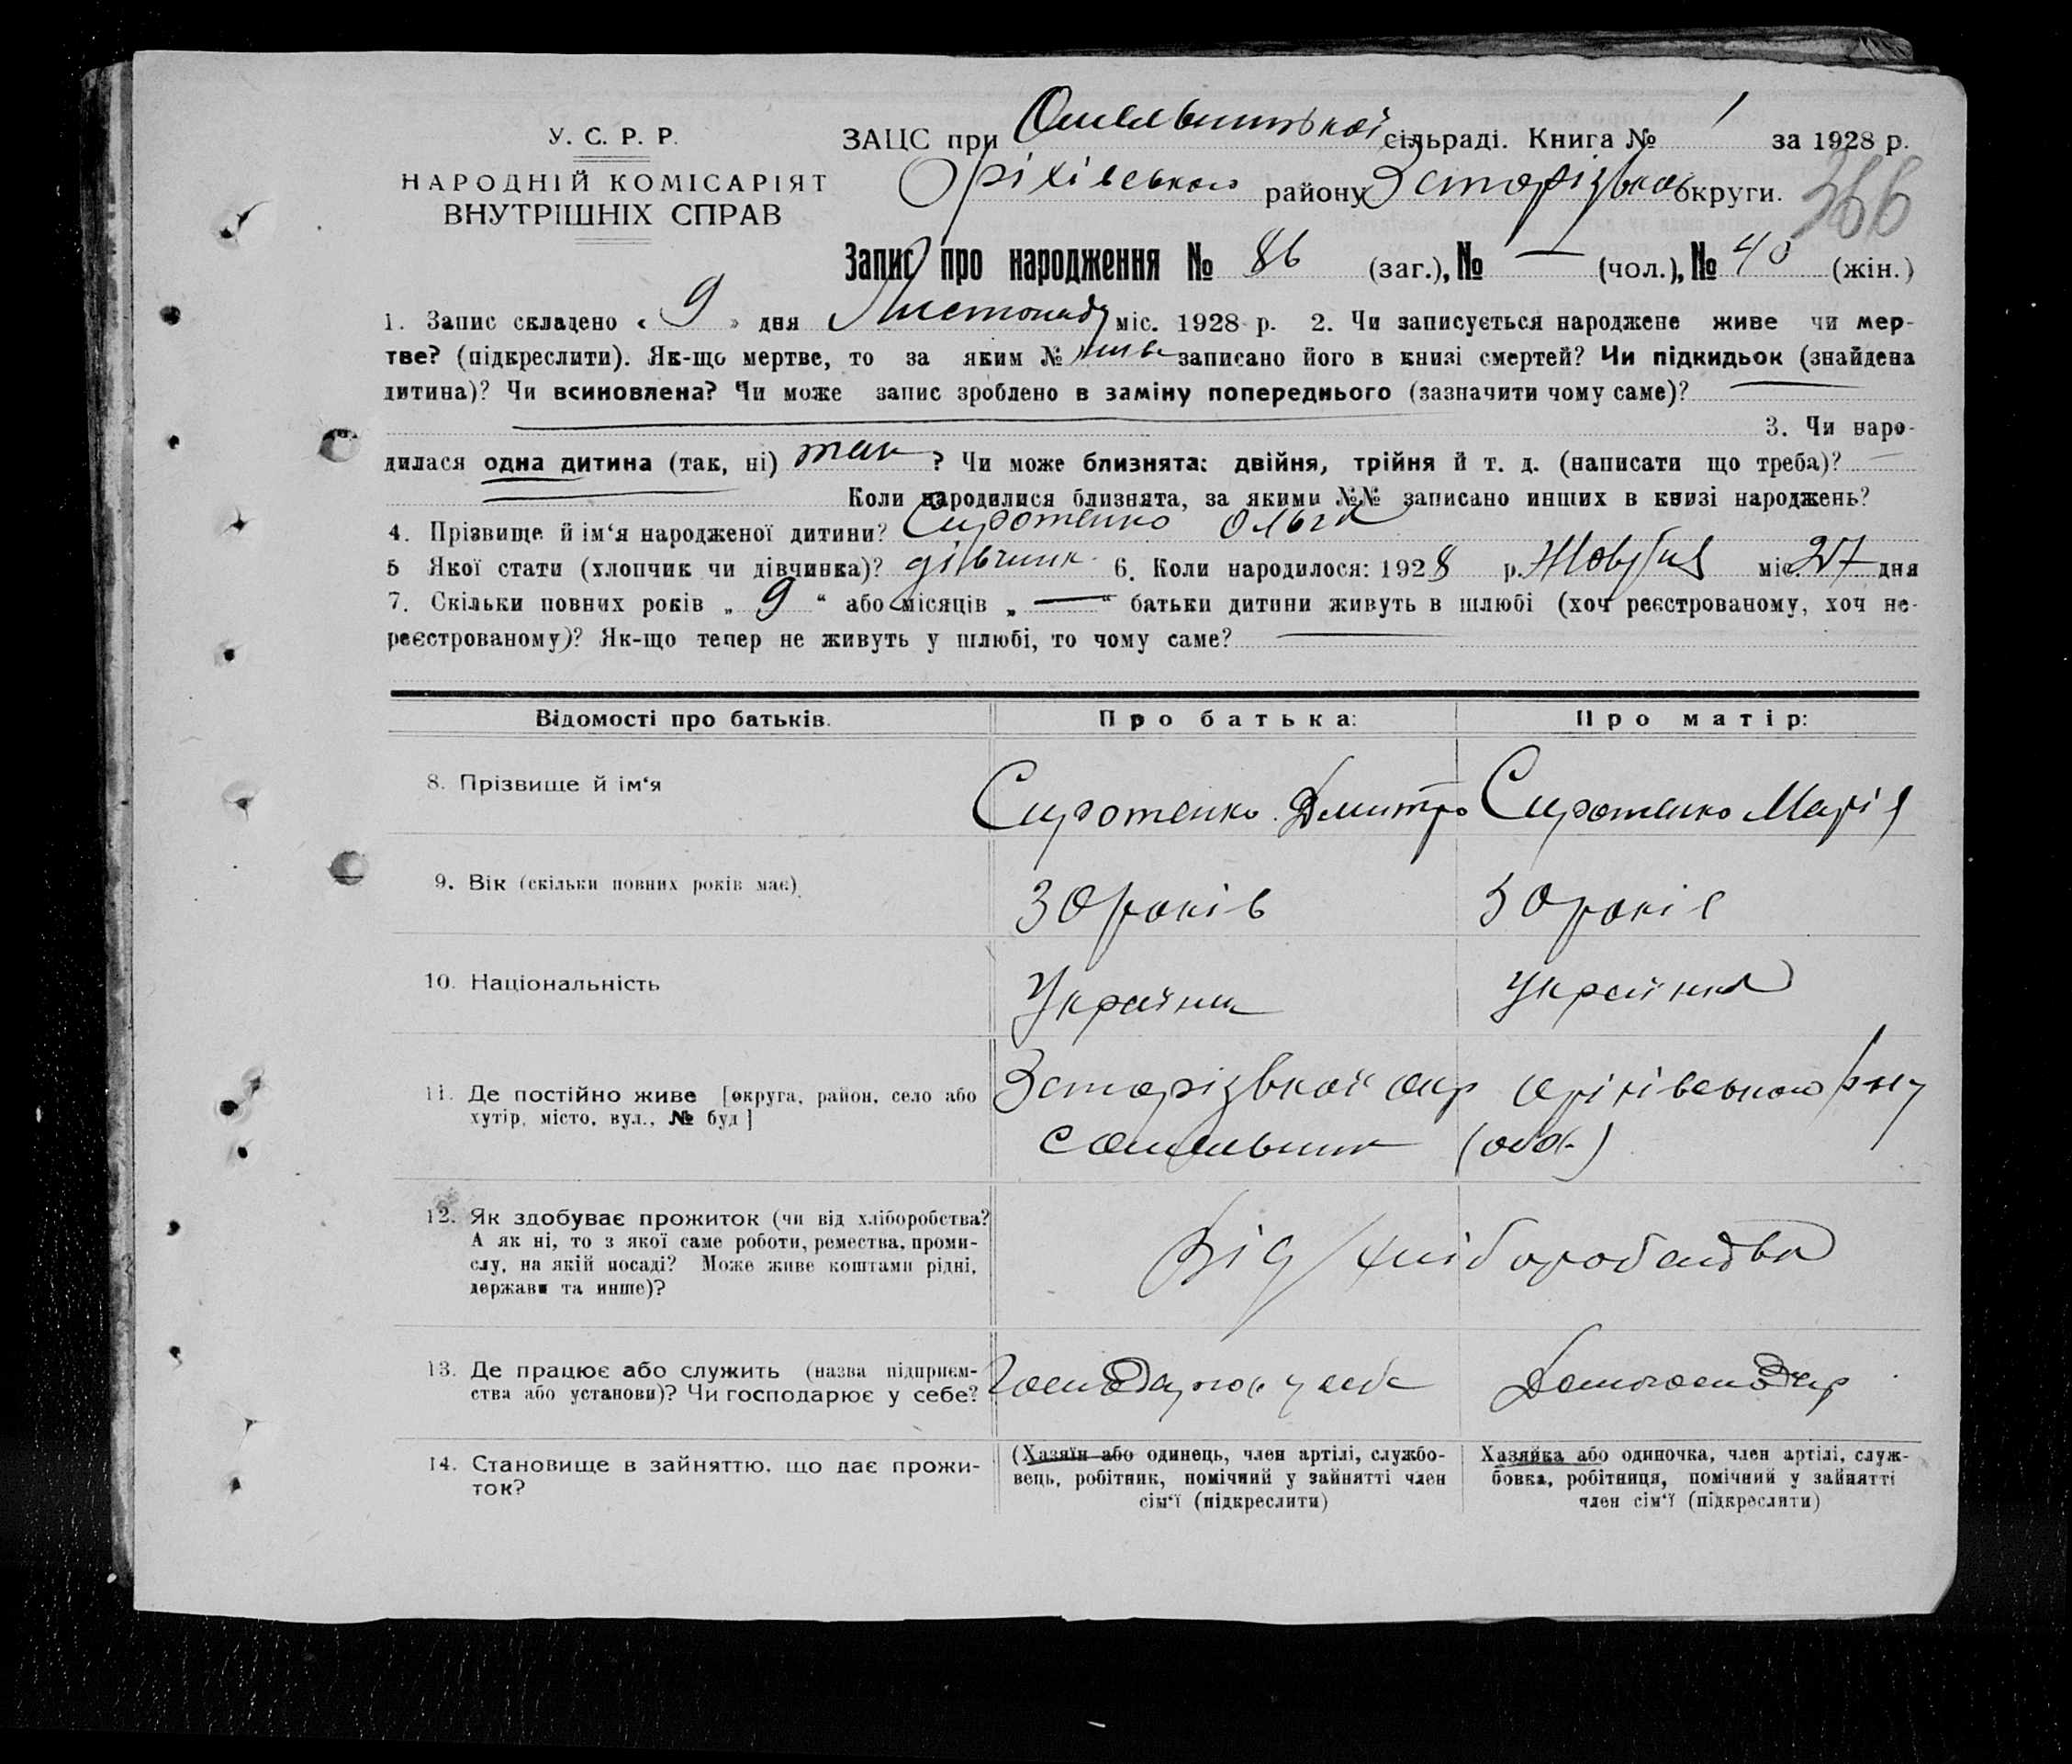 У. С. Р. Р.
НАРОДНІЙ КОМІСАРІЯТ
ВНУТРІШНІХ СПРАВ
ЗАЦС при Омельницькой сільраді. Книга № 1 за 1928 р.
Оріхівського району Запорізької округи.
366
Запис про народження № 86 (заг.), № — (чол.), № 40 (жін.)
1. Запис складено « 9 » дня Листопаду міс. 1928 р. 2. Чи записується народжене живе чи мер-
тве? (підкреслити). Як-що мертве, то за яким № живе записано його в книзі смертей? Чи підкидьок (знайдена
дитина)? Чи всиновлена? Чи може запис зроблено в заміну попереднього (зазначити чому саме)? —
3. Чи наро-
дилася одна дитина (так, ні) так ? Чи може близнята: двійня, трійня й т. д. (написати що треба)? —
Коли народилися близнята, за якими №№ записано инших в книзі народжень?
4. Прізвище й ім‘я народженої дитини? Сиротенко Ольга
5 Якої стати (хлопчик чи дівчинка)? дівчинк 6. Коли народилося: 1928 р. Жовтня міс. 27 дня
7. Скільки повних років „ 9 “ або місяців „ — “ батьки дитини живуть в шлюбі (хоч реєстрованому, хоч не-
реєстрованому)? Як-що тепер не живуть у шлюбі, то чому саме? —
Відомості про батьків.
Про батька:
Про матір:
8. Прізвище й ім‘я
Сиротенко Дмитро
Сиротенко Марія
9. Вік (скільки повних років має).
30 років
30 років
10. Національність
Українец
Українка
11. Де постійно живе [округа, район, село або
хутір, місто, вул., № буд]
Запорізької окр Оріхівського р-ну
с Омельник
12. Як здобуває прожиток (чи від хліборобства?
А як ні, то з якої саме роботи, ремества, проми-
слу, на якій посаді? Може живе коштами рідні,
держави та инше)?
Від хліборобства
13. Де працює або служить (назва підприєм-
ства або установи)? Чи господарює у себе?
Господарює у себе
Домогосподар
14. Становище в зайняттю, що дає прожи-
ток?
(Хазяїн або одинець, член артілі, службо-
вець, робітник, помічний у зайнятті член
сім‘ї (підкреслити)
Хазяйка або одиночка, член артілі, служ-
бовка, робітниця, помічний у зайнятті
член сім‘ї (підкреслити)